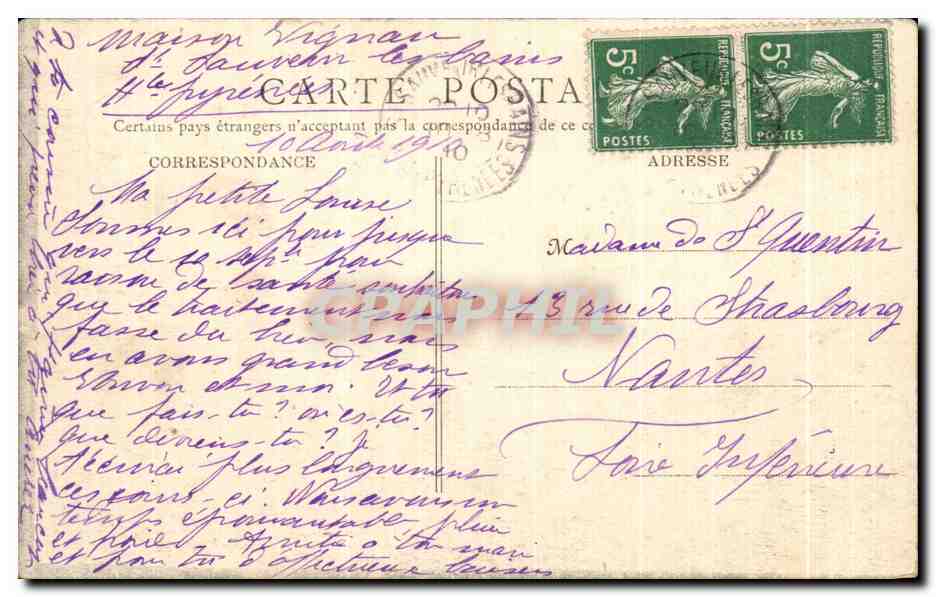 Maison Vignau
St Sauveur les bains
Htes pyrénées
CARTE POSTA
Certains pays étrangers n'acceptent pas la correspondance de ce c
10 Août 1910
CORRESPONDANCE
Ma petite Louise
Sommes ici pour jusque
vers le 10 7bre pour
raison de santé souhaitons
que le traitement nous
fasse du bien, nous
en avons grand besoin
et moi. Et toi
que fais-tu? où es-tu?
que deviens-tu? Je
t'écrirai plus longuement
ces jours-ci. Nous avons un
temps épouvantable, pluie
et froid. Amitiés à ton mari
et pour toi d'affectueux baisers
5c
POSTES
REPUBLIQUE FRANÇAISE
5c
POSTES
REPUBLIQUE FRANÇAISE
ADRESSE
Madame de St Quentin
13 rue de Strasbourg
Nantes
Loire Inférieure
CPAPHIL